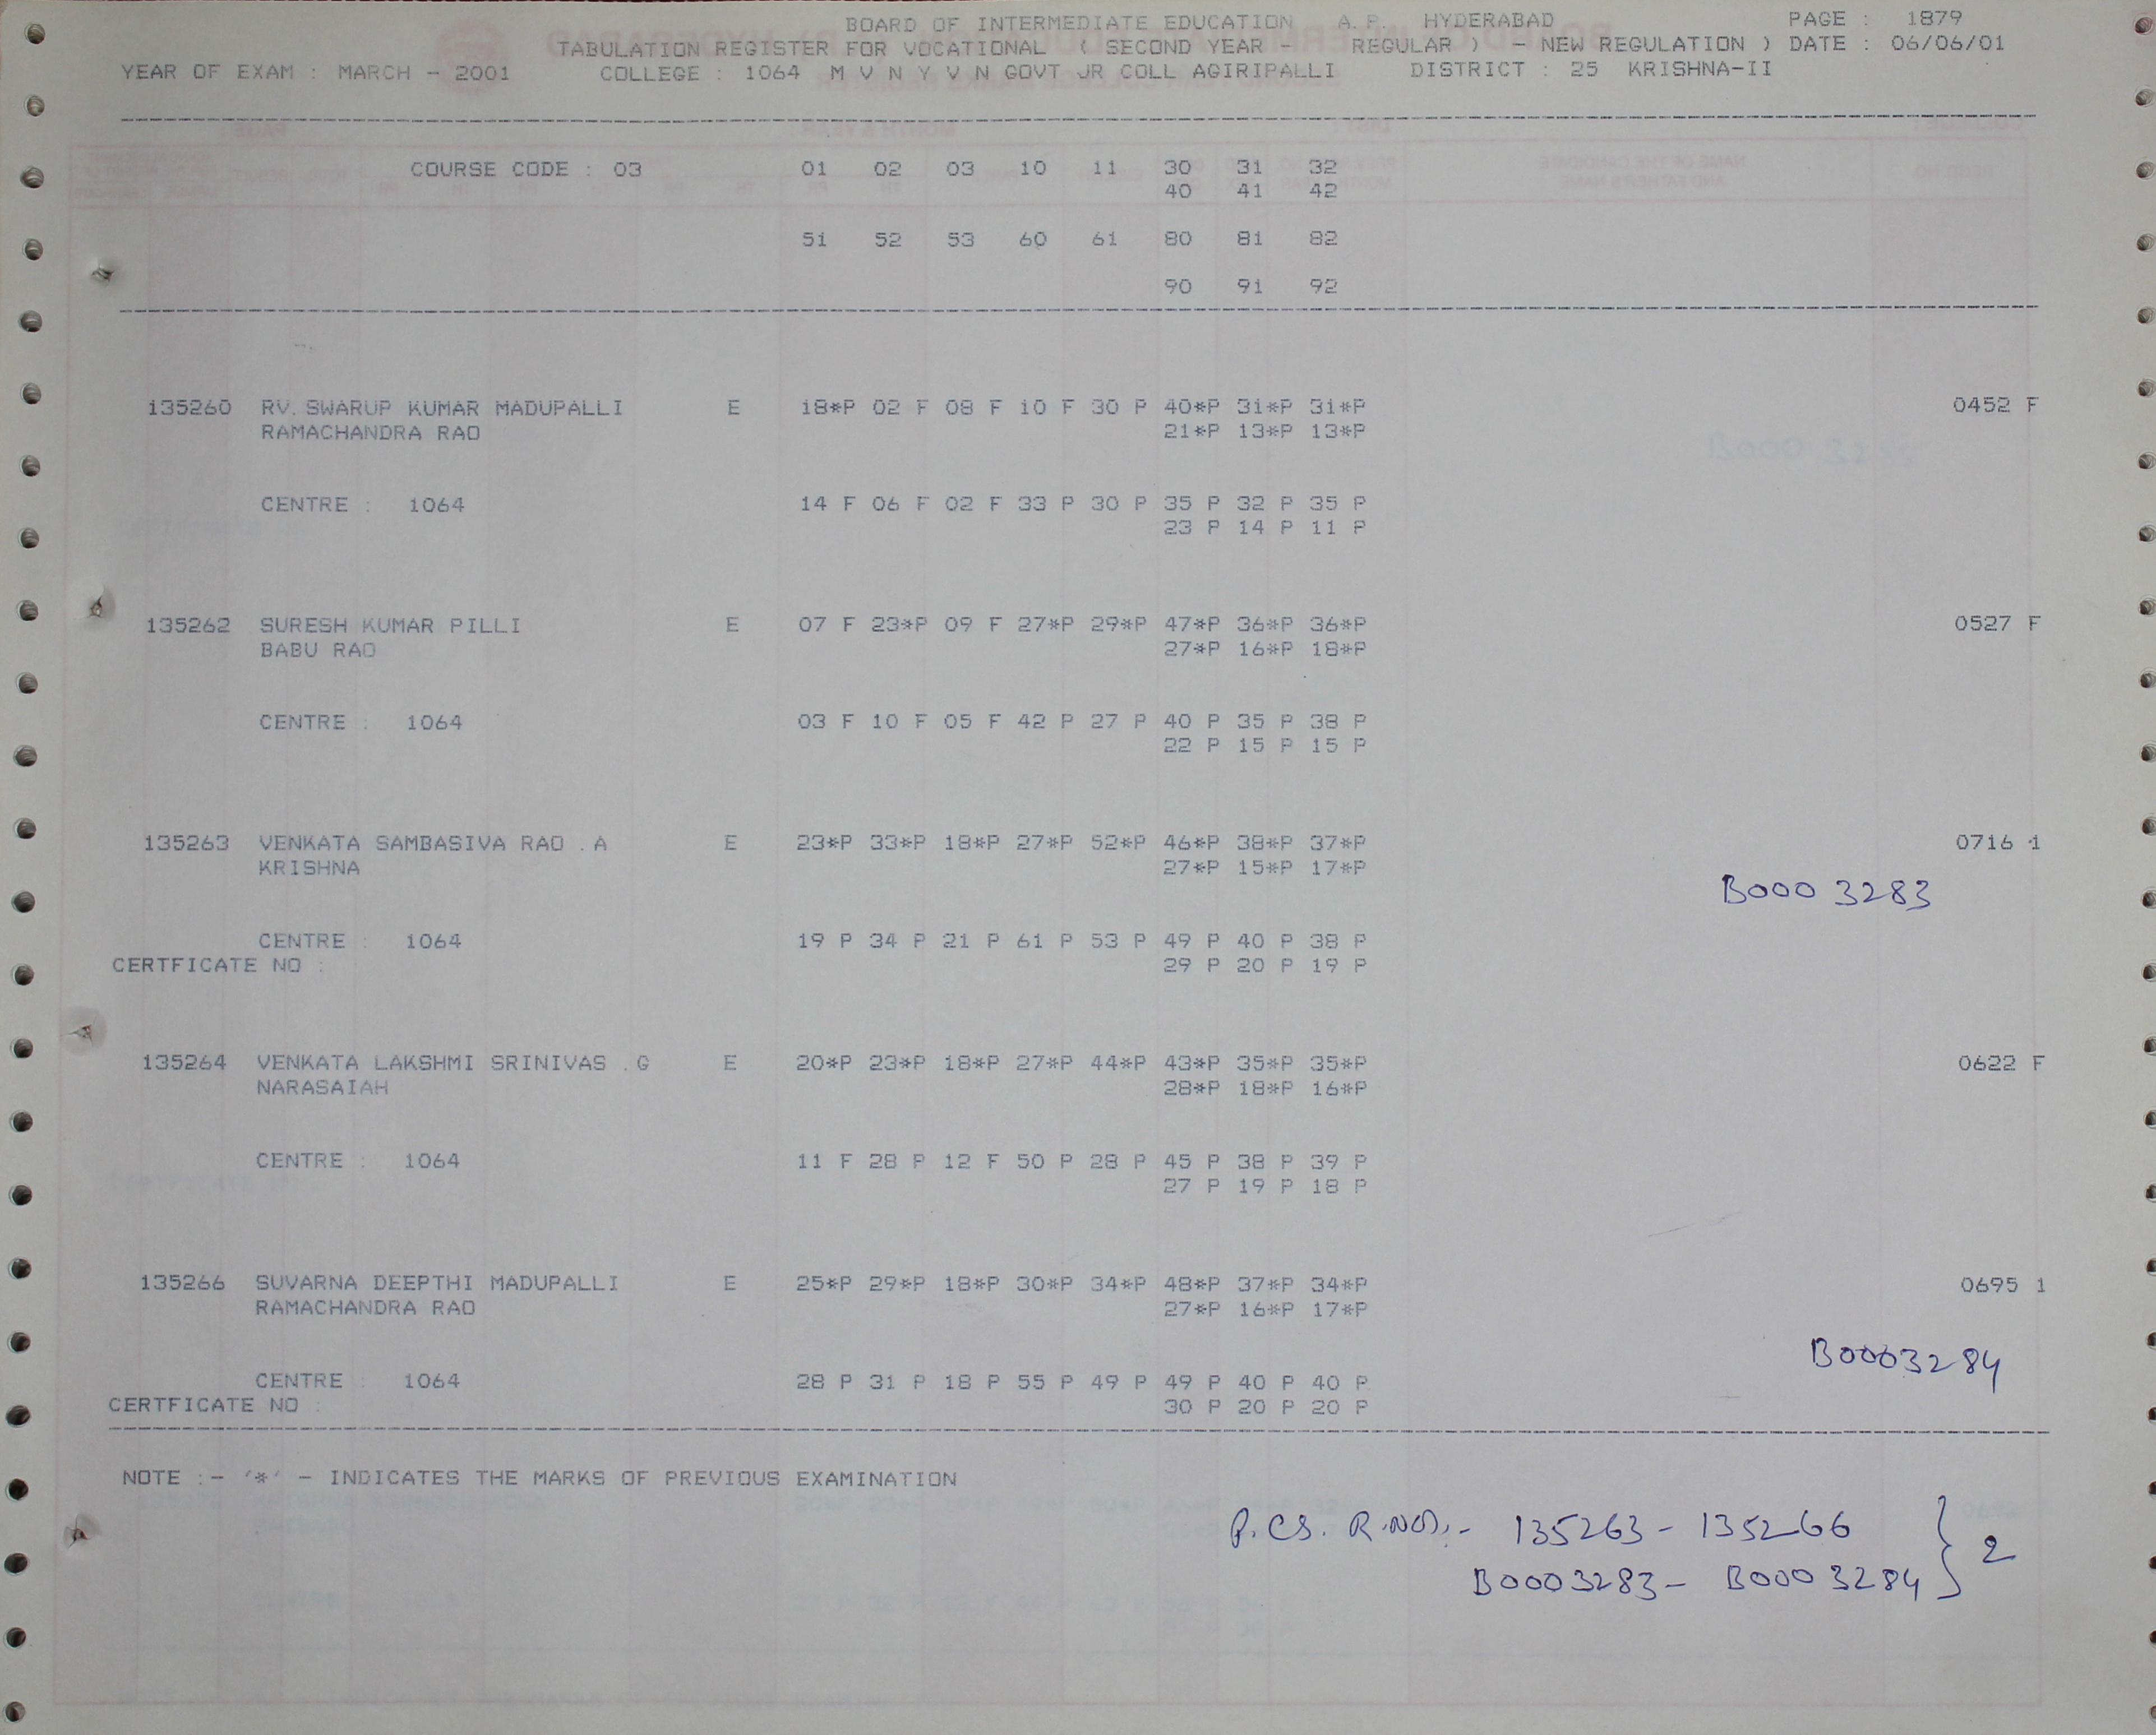 BOARD OF INTERMEDIATE EDUCATION A.P. HYDERABAD PAGE : 1879
TABULATION REGISTER FOR VOCATIONAL ( SECOND YEAR - REGULAR ) - NEW REGULATION ) DATE : 06/06/01
YEAR OF EXAM : MARCH - 2001 COLLEGE : 1064 M V N Y V N GOVT JR COLL AGIRIPALLI DISTRICT : 25 KRISHNA-II
COURSE CODE : 03 01 02 03 10 11 30 31 32
40 41 42
51 52 53 60 61 80 81 82
90 91 92
135260 RV. SWARUP KUMAR MADUPALLI E 18*P 02 F 08 F 10 F 30 P 40*P 31*P 31*P 0452 F
RAMACHANDRA RAO 21*P 13*P 13*P
CENTRE : 1064 14 F 06 F 02 F 33 P 30 P 35 P 32 P 35 P
23 P 14 P 11 P
135262 SURESH KUMAR PILLI E 07 F 23*P 09 F 27*P 29*P 47*P 36*P 36*P 0527 F
BABU RAO 27*P 16*P 18*P
CENTRE : 1064 03 F 10 F 05 F 42 P 27 P 40 P 35 P 38 P
22 P 15 P 15 P
135263 VENKATA SAMBASIVA RAO .A E 23*P 33*P 18*P 27*P 52*P 46*P 38*P 37*P 0716 1
KRISHNA 27*P 15*P 17*P
B000 3283
CENTRE : 1064 19 P 34 P 21 P 61 P 53 P 49 P 40 P 38 P
CERTFICATE NO : 29 P 20 P 19 P
135264 VENKATA LAKSHMI SRINIVAS .G E 20*P 23*P 18*P 27*P 44*P 43*P 35*P 35*P 0622 F
NARASAIAH 28*P 18*P 16*P
CENTRE : 1064 11 F 28 P 12 F 50 P 28 P 45 P 38 P 39 P
27 P 19 P 18 P
135266 SUVARNA DEEPTHI MADUPALLI E 25*P 29*P 18*P 30*P 34*P 48*P 37*P 34*P 0695 1
RAMACHANDRA RAO 27*P 16*P 17*P
B0003284
CENTRE : 1064 28 P 31 P 18 P 55 P 49 P 49 P 40 P 40 P
CERTFICATE NO : 30 P 20 P 20 P
NOTE :- '*' - INDICATES THE MARKS OF PREVIOUS EXAMINATION
P.CS. R.NO:- 135263 - 135266 } 2
B0003283 - B0003284